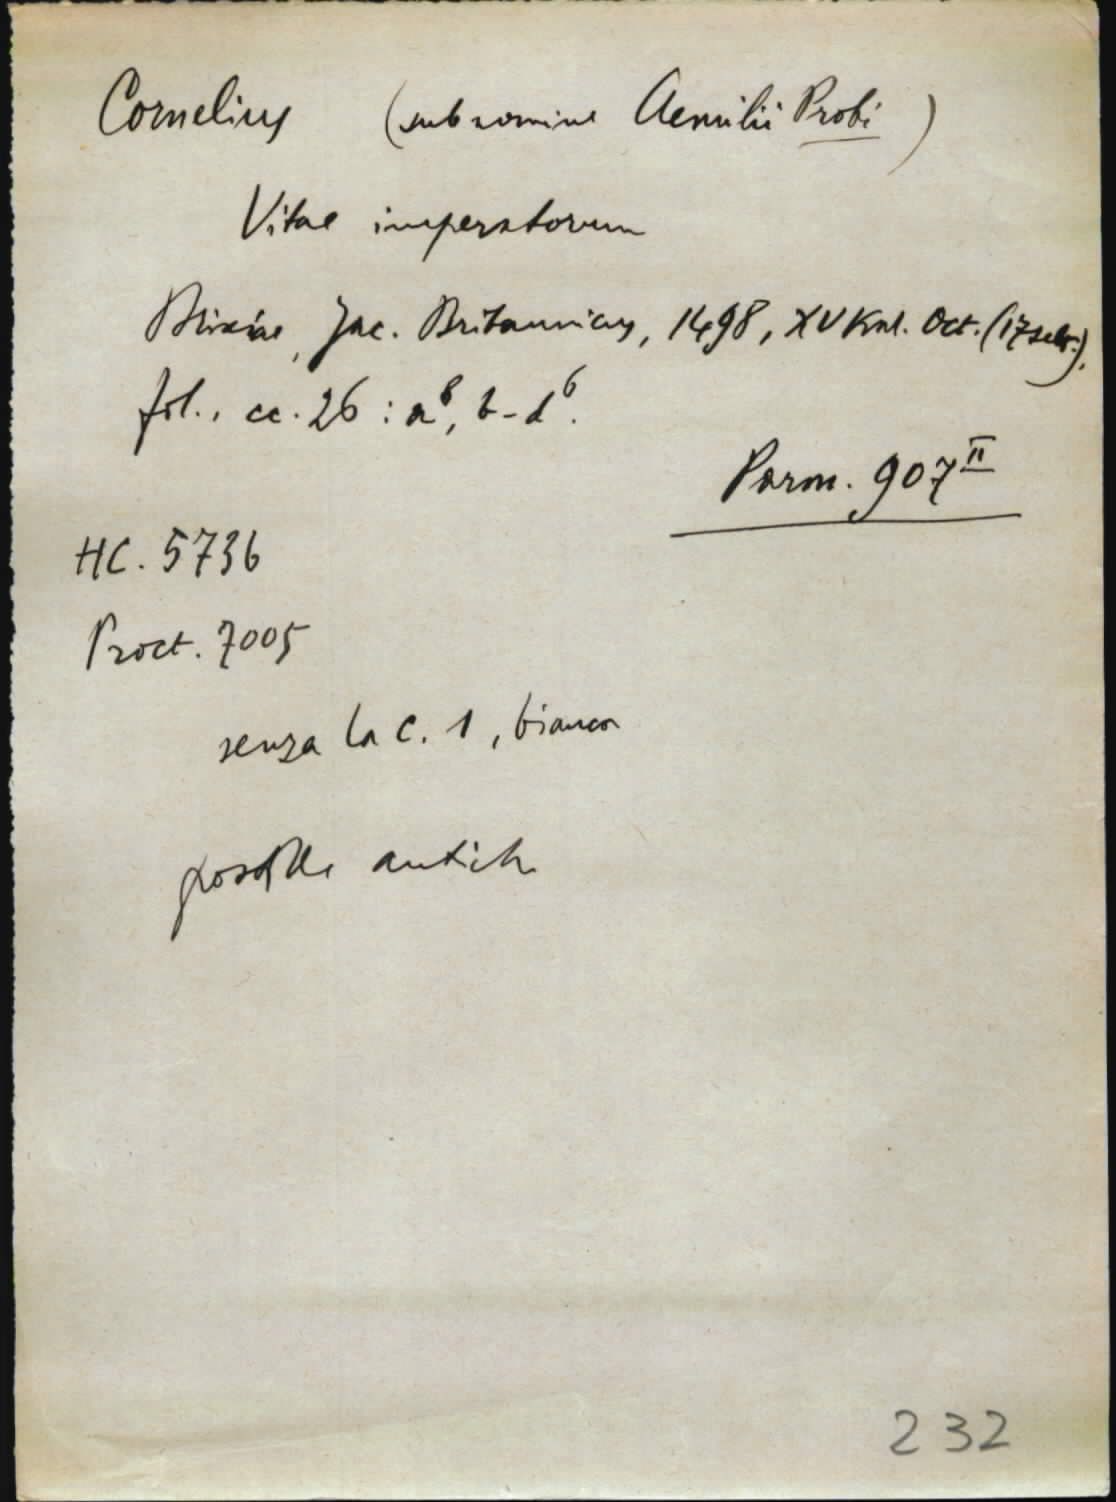 Cornelius (sub nomine Aemilii Probi)
Vitae imperatorum
Brixiae, Jac. Britannicus, 1498, XV Kal. Oct. (17 sett.),
fol., cc. 26 : a⁸, b-d⁶.
Parm. 907ᴵᴵ
HC. 5736
Proct. 7005
senza la c. 1, bianca
postille antiche
232